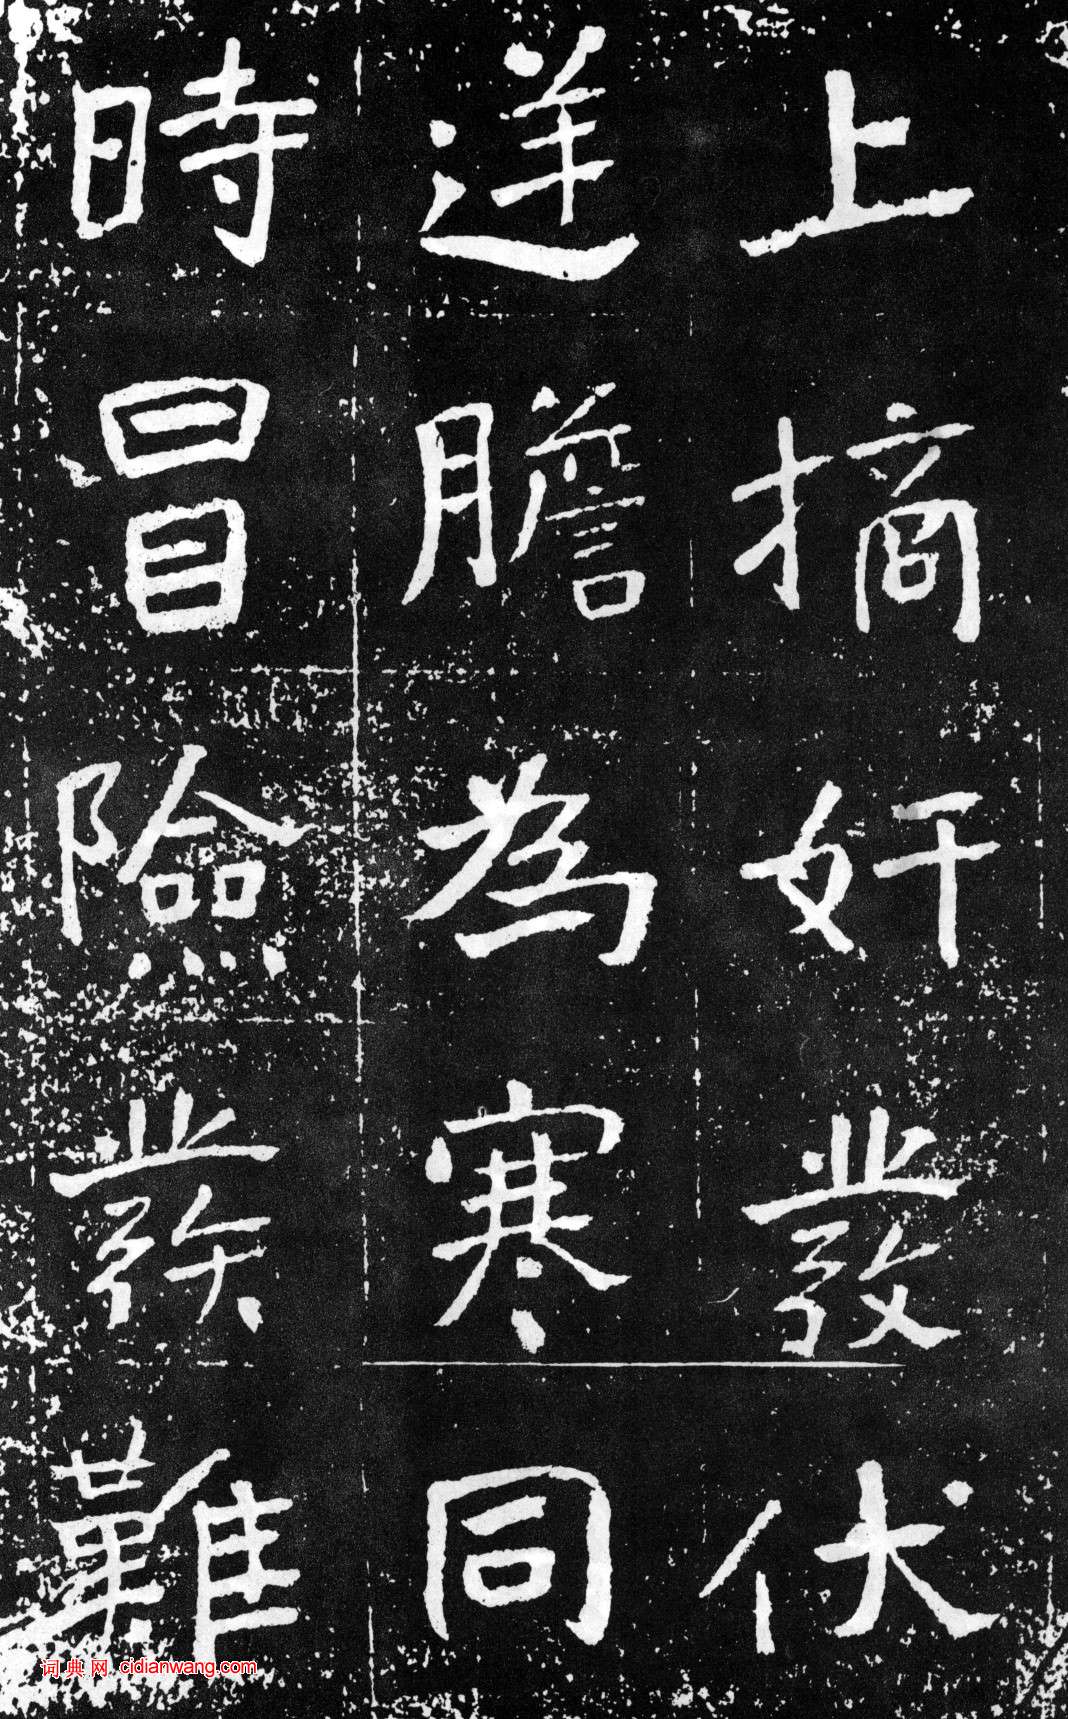 上摘奸發伏
逆膽為寒同
時冒險發難
词典网 cidianwang.com